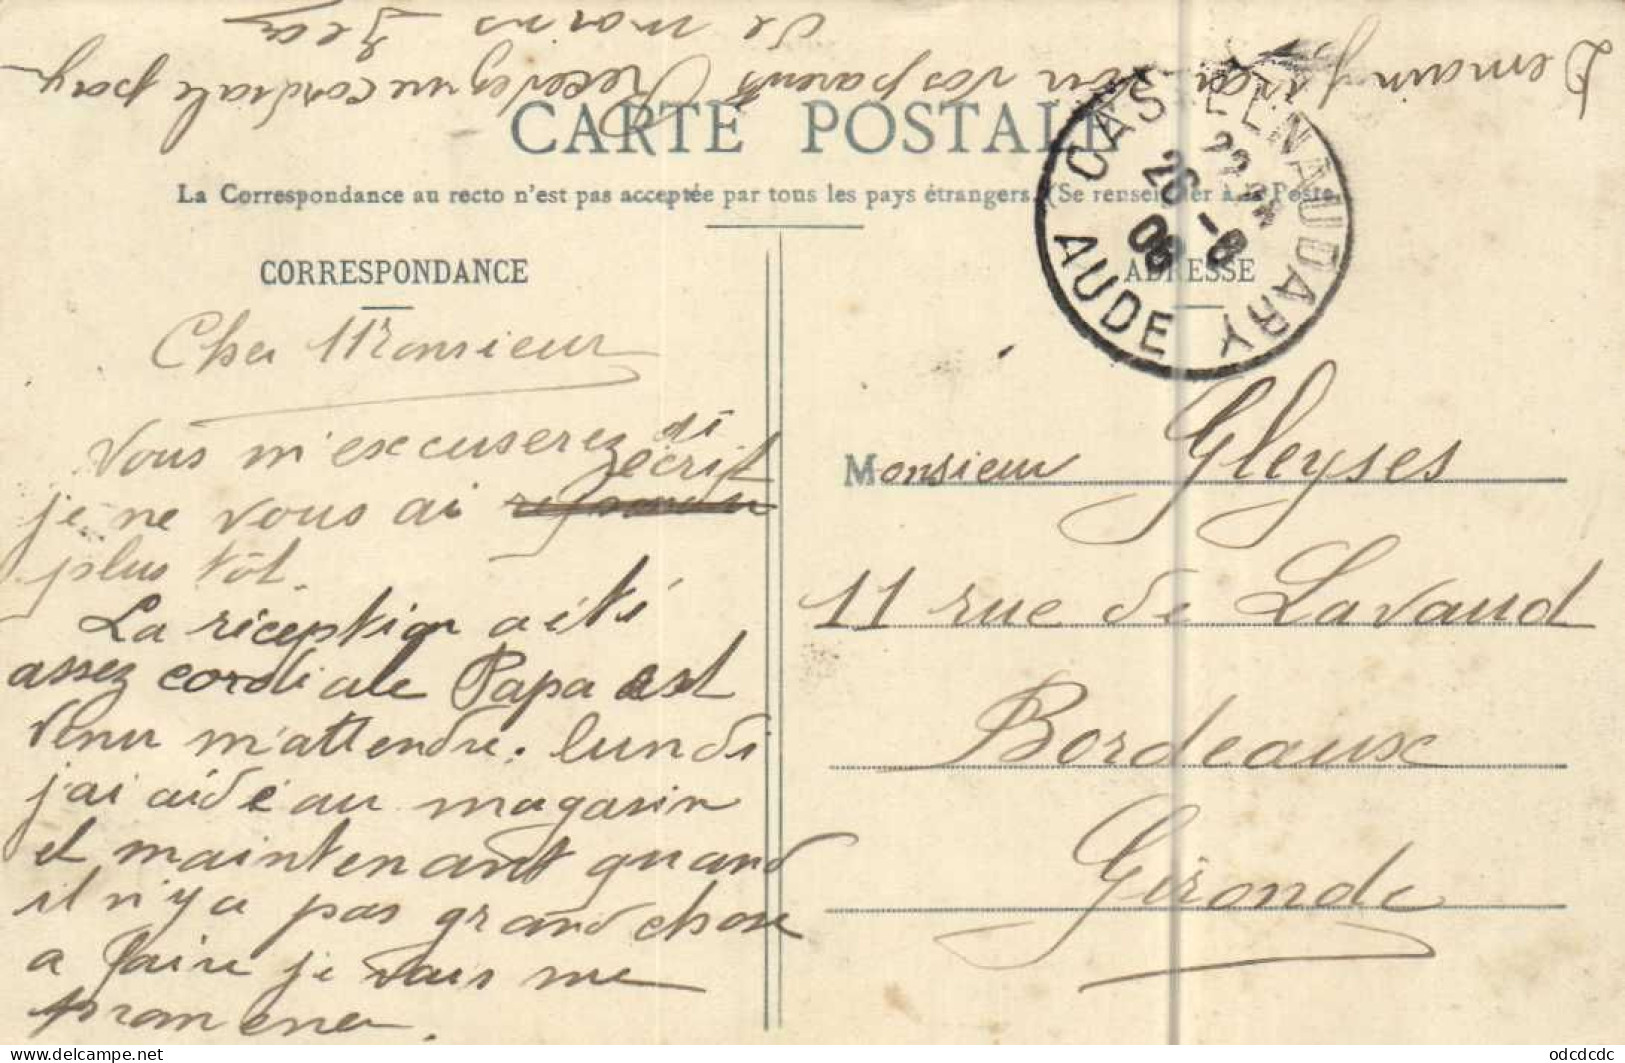 CARTE POSTALE
La Correspondance au recto n'est pas acceptée par tous les pays étrangers. (Se renseigner à la Poste
CORRESPONDANCE
Cher Monsieur
Vous m'excuserez si
je ne vous ai écrit
plus tôt.
La réception a été
assez cordiale Papa est
venu m'attendre. lundi
j'ai aidé au magasin
et maintenant quand
il n'y a pas grand chose
a faire je vais me
promener.
Demain j'irai voir vos parents Recevez une cordiale poig
de mains
CASTELNAUDARY
22
26 -8
08
AUDE
ADRESSE
Monsieur Gleyses
11 rue de Lavaud
Bordeaux
Gironde
www.delcampe.net
odcdcdc